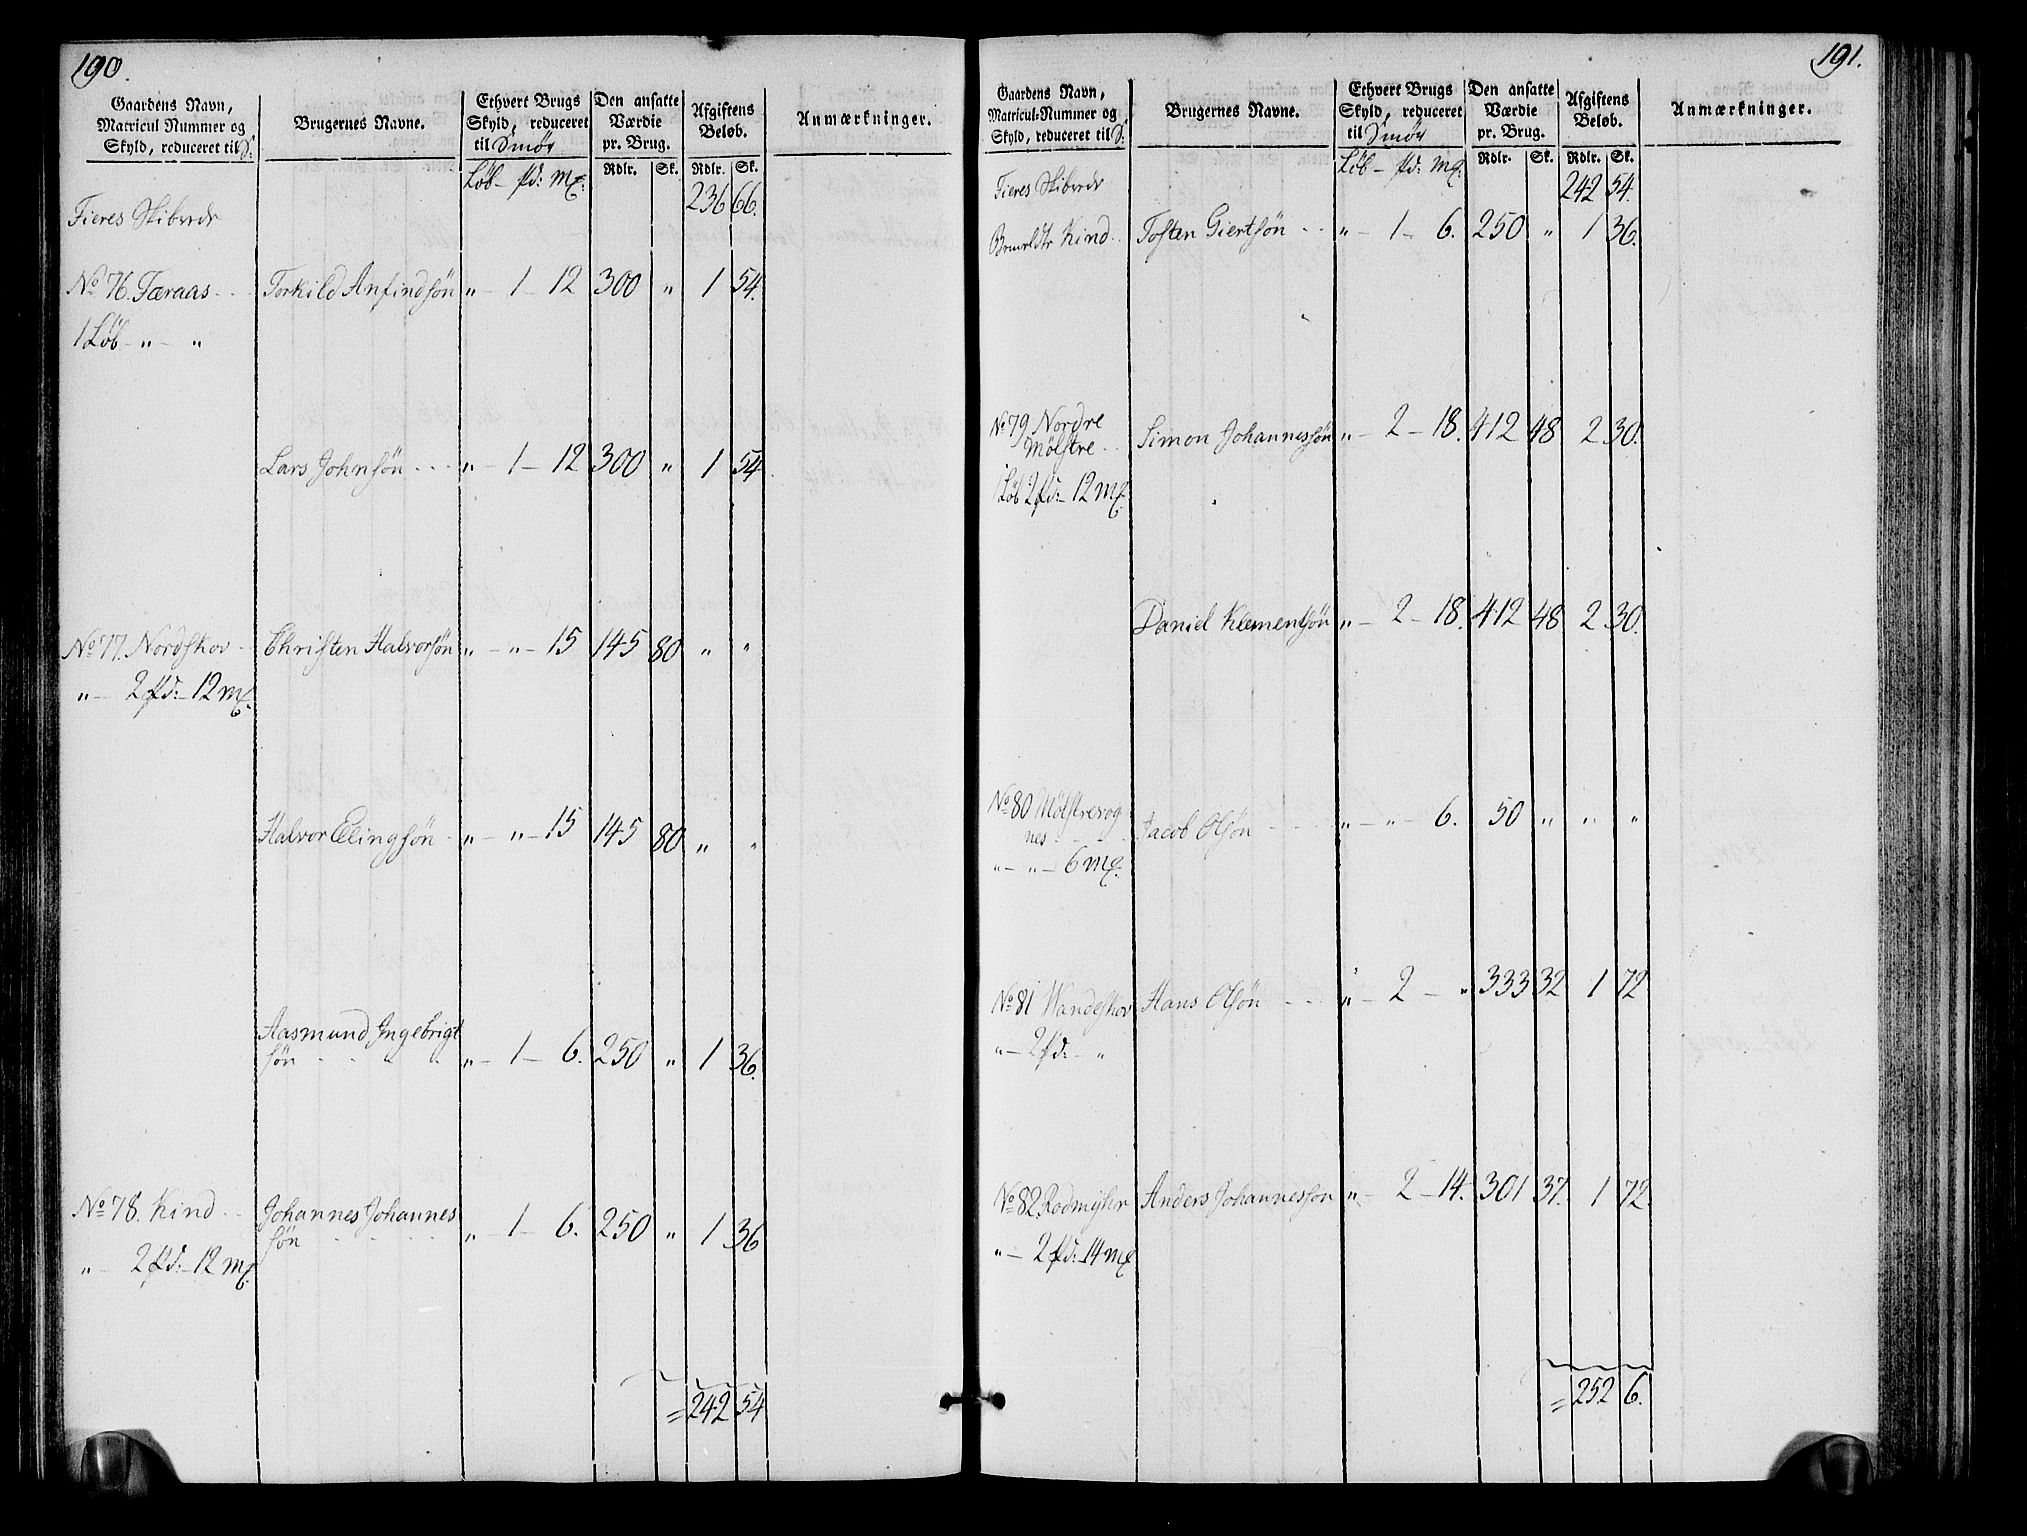 190.
Gaardens Navn, Matricul Nummer og Skyld, reduceret til S:
Brugernes Navne.
Ethvert Brugs Skyld, reduceret til Smør
Den ansatte Værdie pr. Brug.
Afgiftens Beløb.
Anmærkninger.
Løb - pd: Mk:
Rdlr. Sk. Rdlr. Sk.
236 66.
Fieres Skibrede
No 76. Færaas - - Torkild Anfindsøn " - 1 - 12 300 " 1 54.
1 Løb - " - "
Lars Johnsøn - - - " - 1 - 12 300 " 1 54.
No 77. Nordskov - Christen Halvorsøn " - " - 15 145 80 " "
" - 2 pd: - 12 Mk.
Halvor Elingsøn - " - " - 15 145 80 " "
Aasmund Ingebrigt
søn - - - - " - 1 - 6. 250 " 1 36.
No 78. Kind - - Johannes Johannes
søn - - - - " - 1 - 6. 250 " 1 36
" - 2 pd: - 12 Mk.
= 242 54
191.
Gaardens Navn, Matricul-Nummer og Skyld, reduceret til S:
Brugernes Navne.
Ethvert Brugs Skyld, reduceret til Smør
Den ansatte Værdie pr. Brug.
Afgiftens Beløb.
Anmærkninger.
Løb - pd: Mk.
Rdlr. Sk. Rdlr. Sk.
Fieres Skibrede 242 54.
Kind - Tosten Giertsøn - - " - 1 - 6. 250 " 1 36.
No 79 Nordre
Mølstre - - Simon Johannessøn " - 2 - 18. 412 48 2 30.
1 Løb 2 pd: - 12 Mk.
Daniel Klementsøn " - 2 - 18. 412 48 2 30.
No 80 Mølstrevog
nes - - - Jacob Olsøn - - " - " - 6. 50 " " "
" - " - 6 Mk.
No 81 Wandeskov Hans Olsøn - - - " - 2 - " 333 32 1 72
" - 2 pd: - "
No 82. Rodmyhr Anders Johannessøn " - 2 - 14. 301 37. 1 72
" - 2 pd: - 14 Mk
= 252 6.